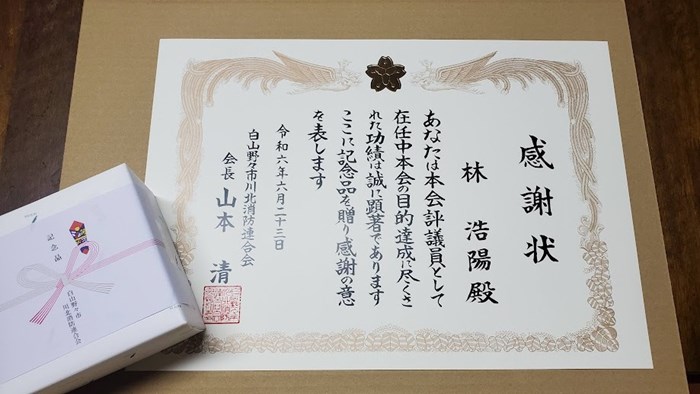 感謝状
林 浩陽殿
あなたは本会評議員として
在任中本会の目的達成に尽くさ
れた功績は誠に顕著であります
ここに記念品を贈り感謝の意
を表します
令和六年六月二十三日
白山野々市川北消防連合会
会長 山本 清
記念品
白山野々市
川北消防連合会